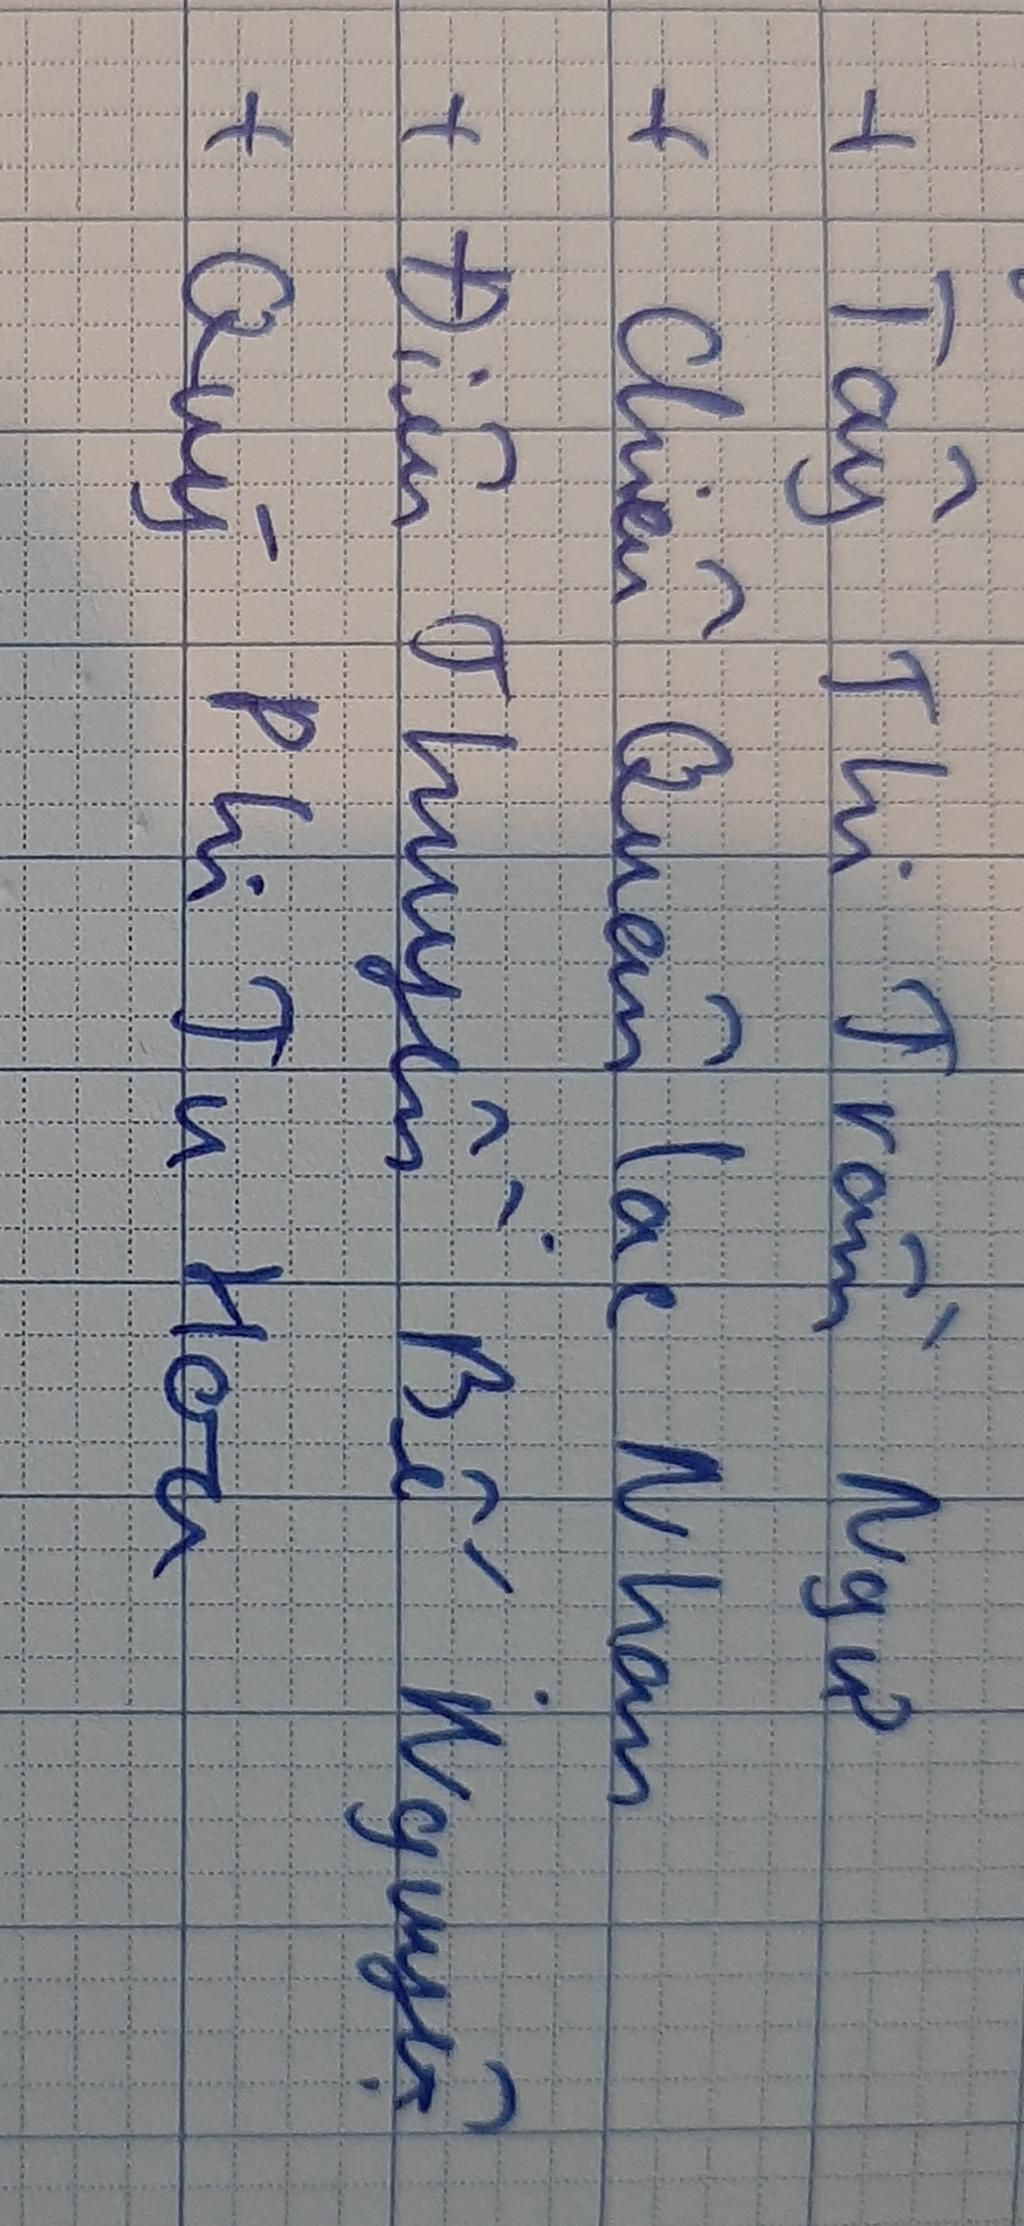 + Tây Thi Trầm Ngư
+ Chiên Quân lac Nhan
+ Điêu Thuyền Bế Nguyệt
+ Quý Phi Tu Hoa